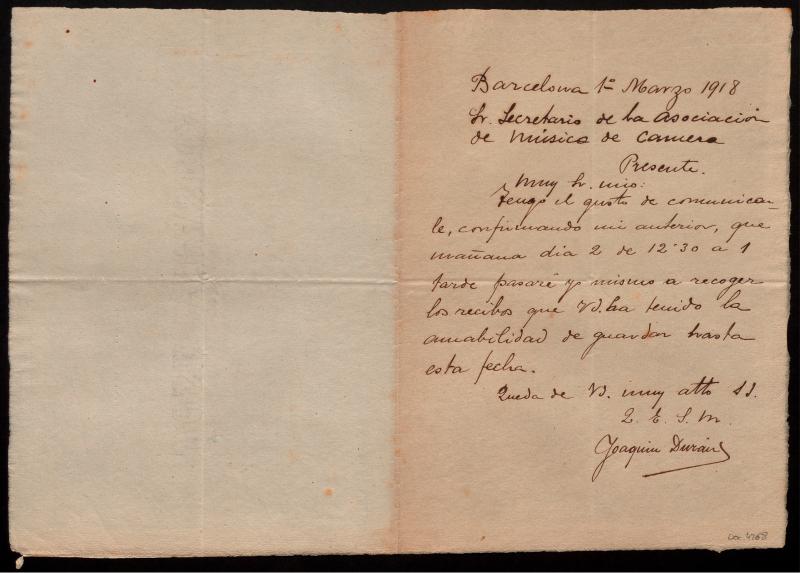 Barcelona 1º Marzo 1918
Sr. Secretario de la Asociación
de música de camera
Presente.
Muy Sr. mio:
Tengo el gusto de comunicar-
le, confirmando mi anterior, que
mañana dia 2 de 12'30 a 1
tarde pasaré yo mismo a recoger
los recibos que Vd. ha tenido la
amabilidad de guardar hasta
esta fecha.
Queda de Vd. muy atto SS.
Q. E. S. M.
Joaquin Durán